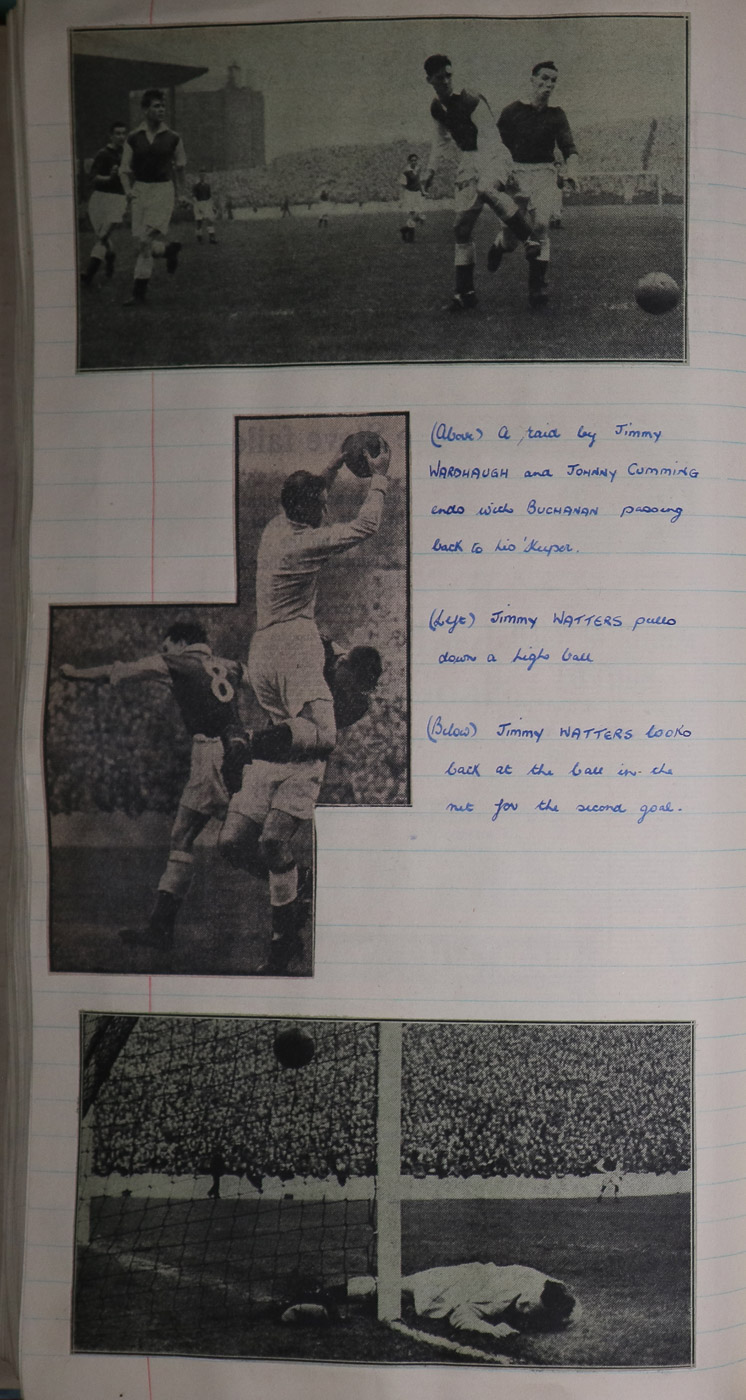 (Above) A raid by Jimmy
WARDHAUGH and JOHNNY CUMMING
ends with BUCHANAN passing
back to his 'Keeper.
(Left) Jimmy WATTERS pulls
down a high ball
8
(Below) Jimmy WATTERS looks
back at the ball in the
net for the second goal.